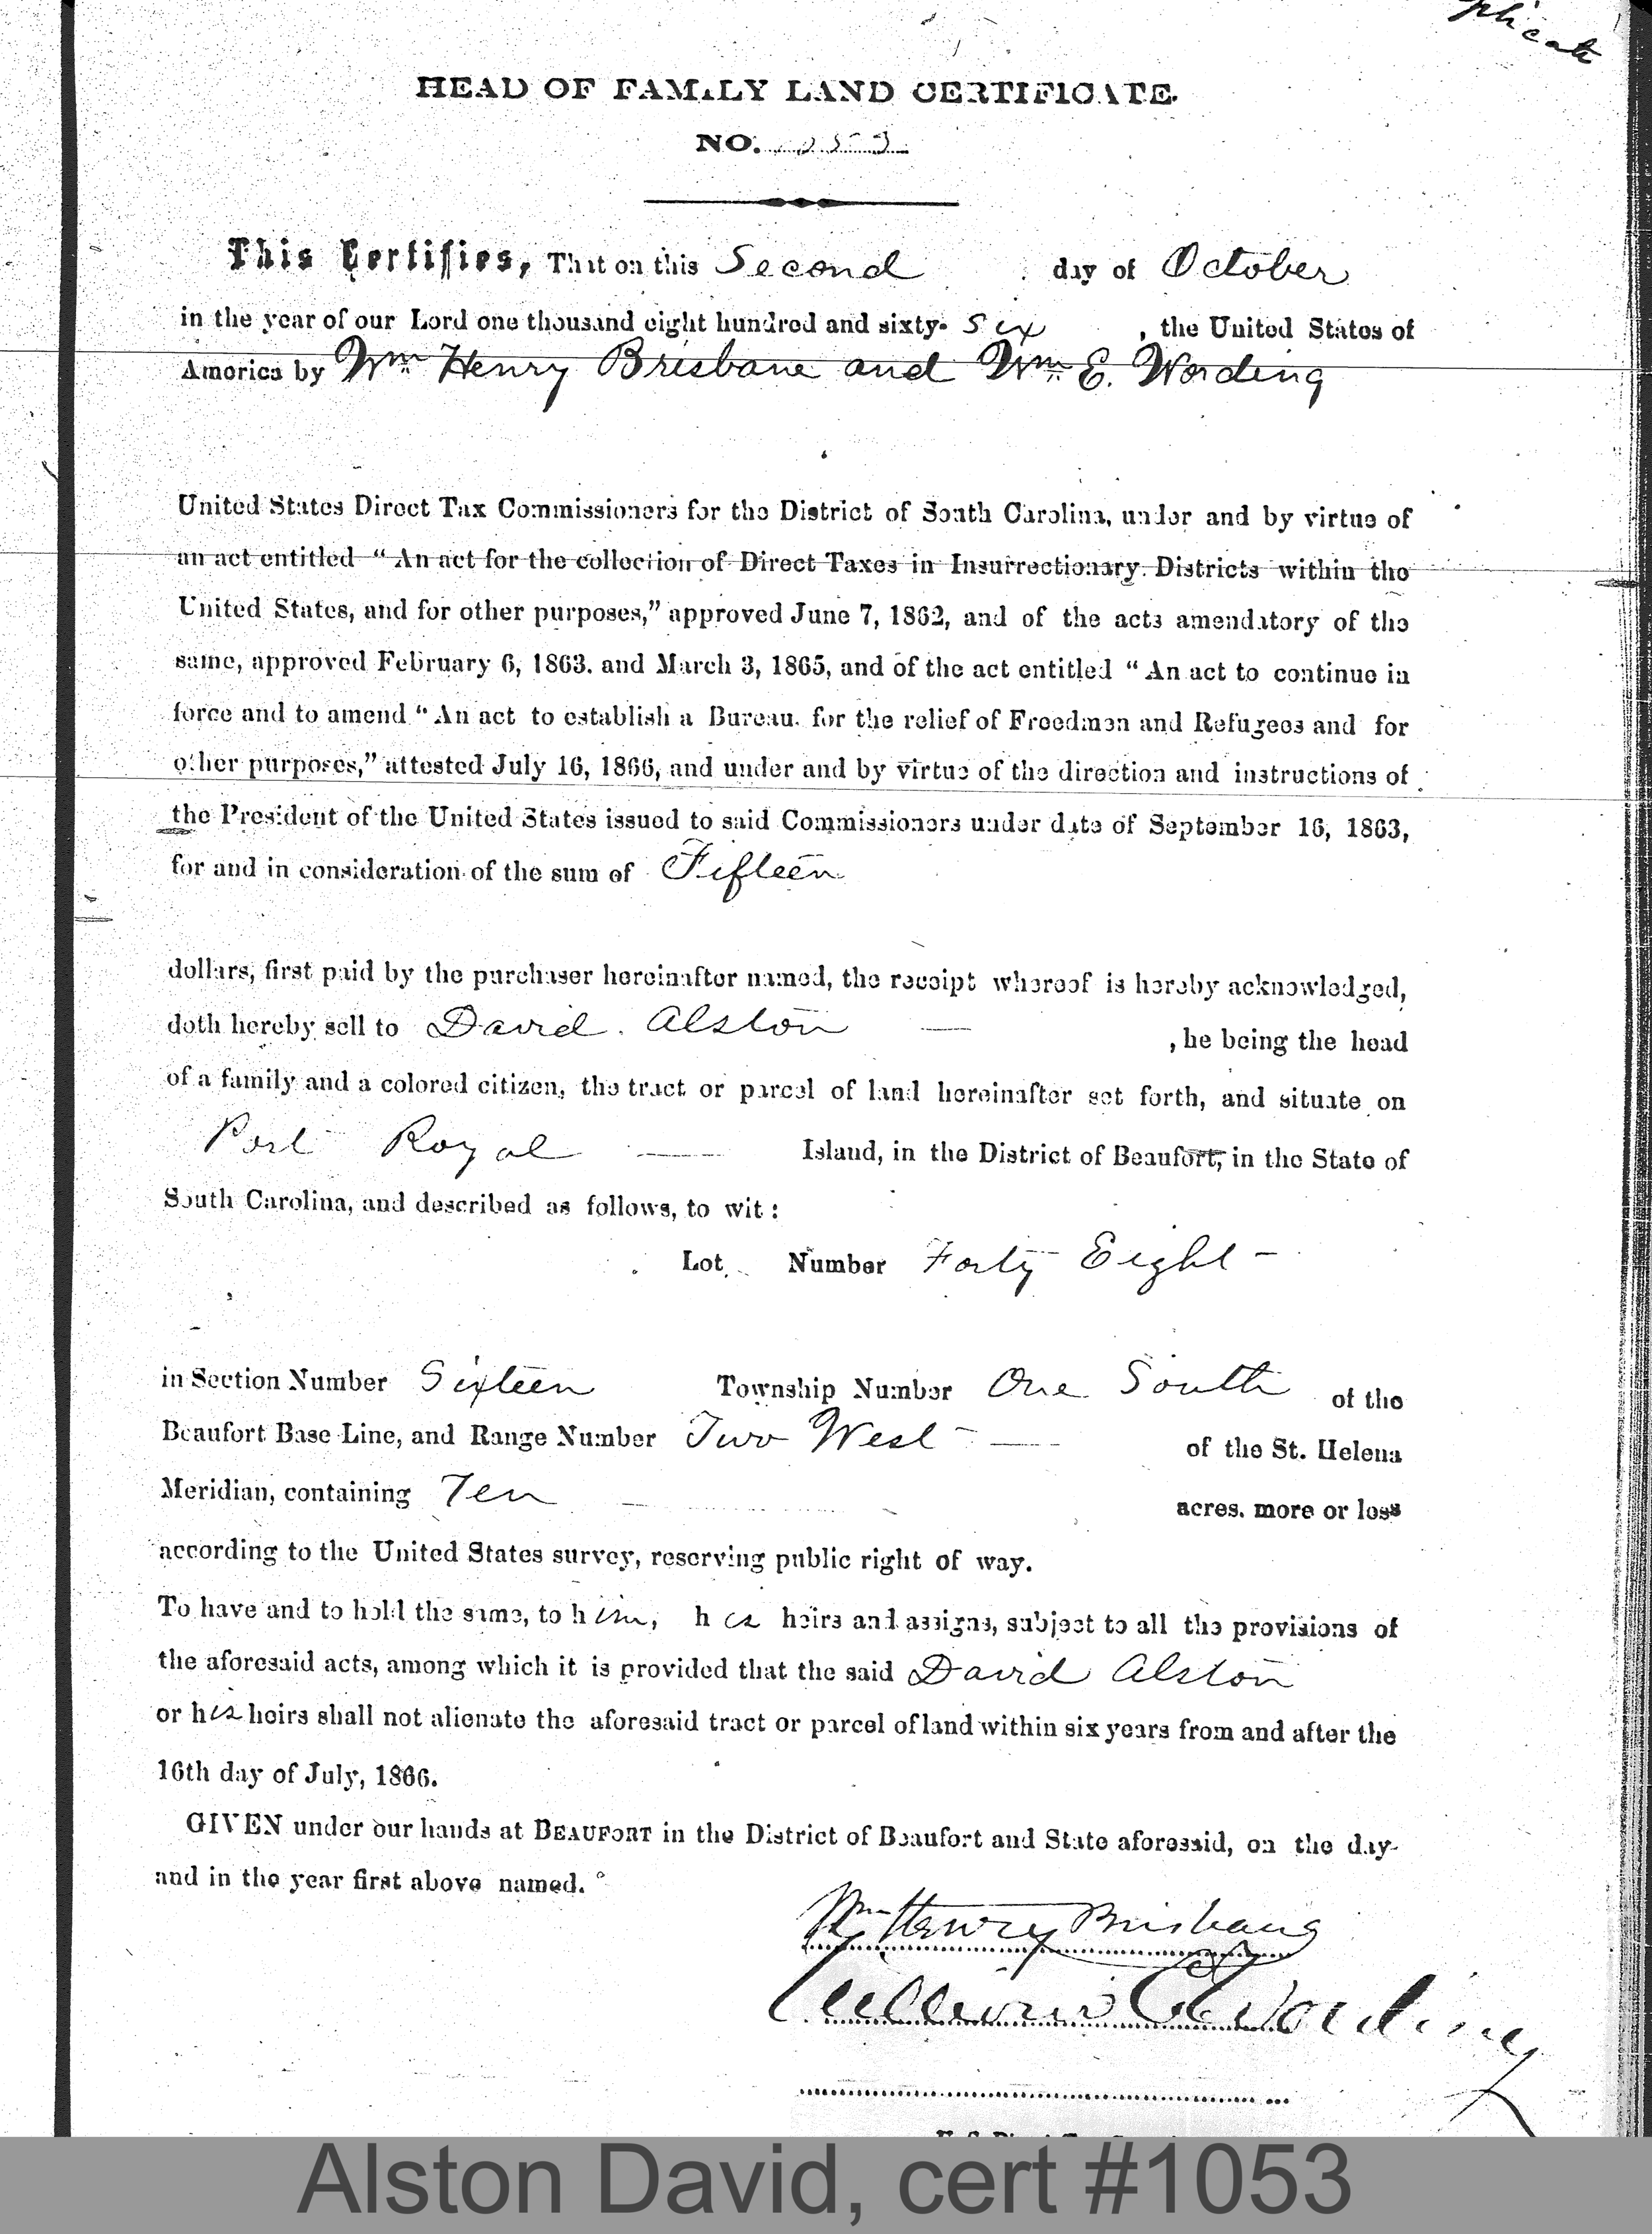 plicate
HEAD OF FAMILY LAND CERTIFICATE.
NO. 1053
This Certifies, That on this Second day of October
in the year of our Lord one thousand eight hundred and sixty- six , the United States of
America by Wm Henry Brisbane and Wm E. Wording
United States Direct Tax Commissioners for the District of South Carolina, under and by virtue of
an act entitled “An act for the collection of Direct Taxes in Insurrectionary Districts within the
United States, and for other purposes,” approved June 7, 1862, and of the acts amendatory of the
same, approved February 6, 1863. and March 3, 1865, and of the act entitled “An act to continue in
force and to amend “An act to establish a Bureau for the relief of Freedmen and Refugees and for
other purposes,” attested July 16, 1866, and under and by virtue of the direction and instructions of
the President of the United States issued to said Commissioners under date of September 16, 1863,
for and in consideration of the sum of Fifteen
dollars, first paid by the purchaser hereinafter named, the receipt whereof is hereby acknowledged,
doth hereby sell to David Alston , he being the head
of a family and a colored citizen, the tract or parcel of land hereinafter set forth, and situate on
Port Royal Island, in the District of Beaufort, in the State of
South Carolina, and described as follows, to wit:
Lot Number Forty Eight
in Section Number Sixteen Township Number One South of the
Beaufort Base Line, and Range Number Two West of the St. Helena
Meridian, containing Ten acres. more or less
according to the United States survey, reserving public right of way.
To have and to hold the same, to him, his heirs and assigns, subject to all the provisions of
the aforesaid acts, among which it is provided that the said David Alston
or his heirs shall not alienate the aforesaid tract or parcel of land within six years from and after the
16th day of July, 1866.
GIVEN under our hands at BEAUFORT in the District of Beaufort and State aforesaid, on the day
and in the year first above named.
Wm Henry Brisbane
William E Wording
Alston David, cert #1053